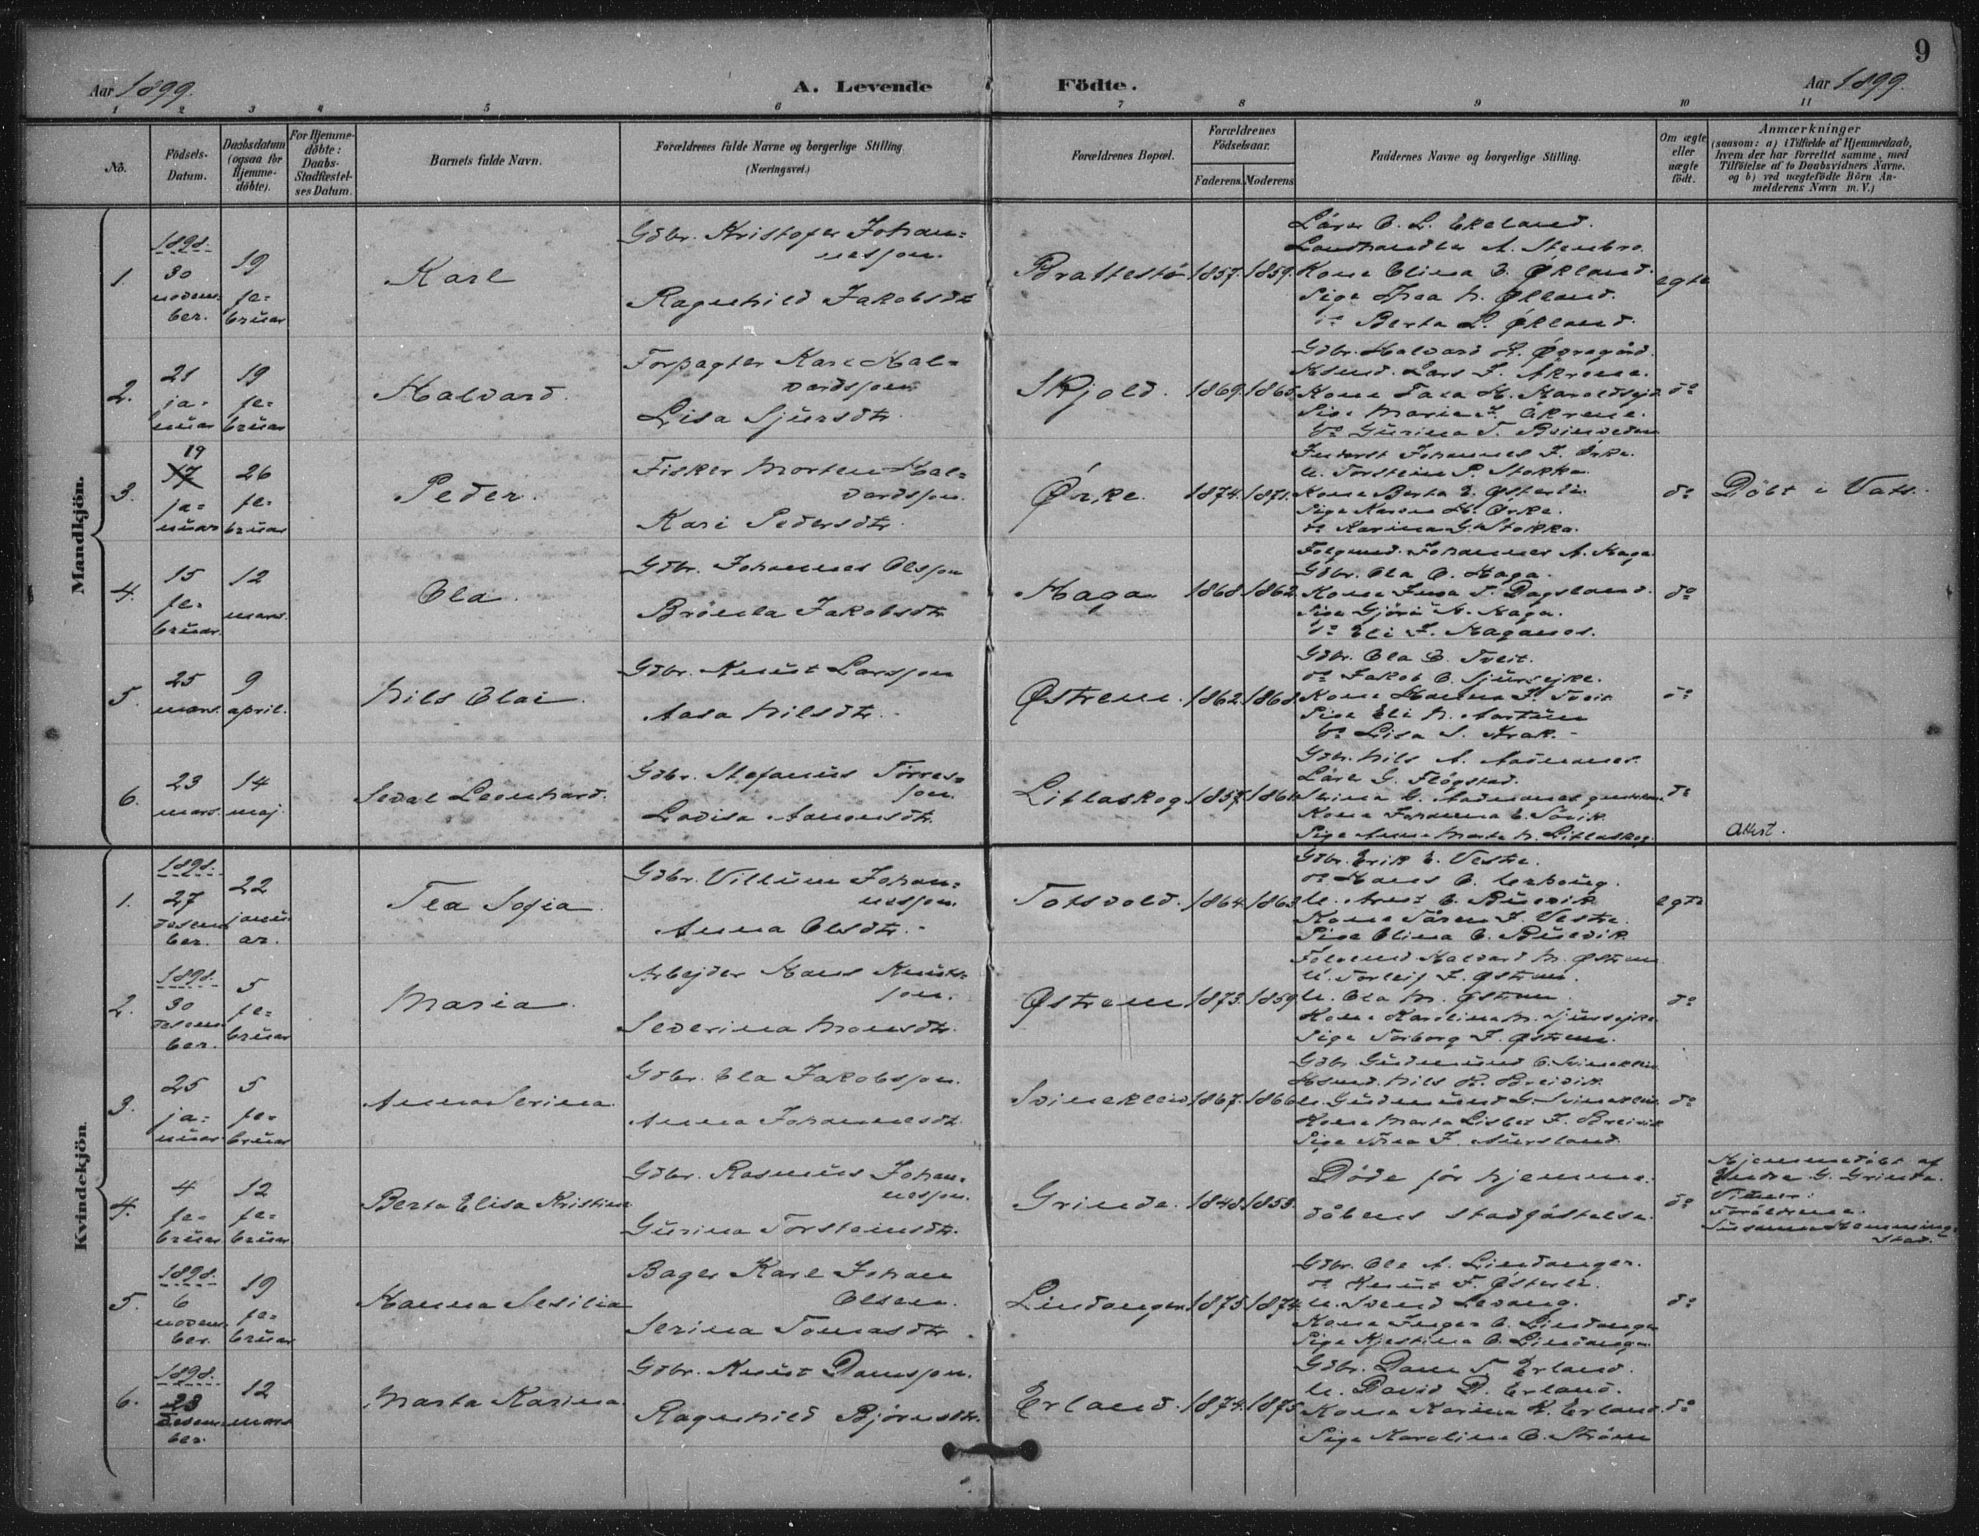 9
Aar 1899. A. Levende Födte. Aar 1899.
1 2 3 4 5 6 7 8 9 10 11
No.
Födsels-Datum.
Daabsdatum (ogsaa for Hjemmedöbte).
For Hjemmedöbte: Daabs-Stadfæstelses Datum.
Barnets fulde Navn.
Forældrenes fulde Navne og borgerlige Stilling (Næringsvei.)
Forældrenes Bopæl.
Forældrenes Födselsaar.
Faderens. Moderens.
Faddernes Navne og borgerlige Stilling.
Om ægte eller uægte födt.
Anmærkninger
(saasom: a) i Tilfælde af Hjemmedaab, hvem der har forrettet samme, med Tilföielse af to Daabsvidners Navne. og b) ved uægtefödte Börn Anmelderens Navn m. V.)
Mandkjön.
1 1898. 30 november. 19 februar Karl
Gdbr. Kristofer Johannesson.
Ragnhild Jakobsdtr
Brattestø 1857. 1859.
Lärer O. L. Ekeland.
Landhandler A. Stenbro.
Kone Elina E. Økland.
Pige Thea N. Økland.
do Berta L. Økland.
egte
2. 21 januar 19 februar Halvard.
Forpagter Karl Halvardsson
Lisa Sjursdtr.
Skjold. 1869. 1865.
Gdbr. Halvard H. Øvregård.
Lars J. Åkrene.
Kone
Pige Maria J. Åkrene.
do Gurina T.
do
3. 19 januar 26 februar Peder.
Fisker Morten Halvardsson.
Kari Pedersdtr.
Ørke. 1874. 1871.
Johannes J. Ørke.
U. Torstein P. Stokka.
Kone Berta E. Østerli.
Pige Karen H. Ørke.
do Karina G. Stokka.
do Döbt i Vats.
4. 15 februar 12 mars. Ola.
Gdbr. Johannes Olsson
Brönla Jakobsdtr
Haga 1868. 1862.
Johannes A. Haga
Gdbr. Ola O. Haga.
Kone T. Dagsland.
Pige A. Haga.
do Eli J. Haganes.
do
5. 25 mars. 9 april. Nils Olai
Gdbr. Knut Larsson
Aasa Nilsdtr.
Østrem. 1862. 1868.
Gdbr. Ola O. Tveit.
do Jakob O. Sjursejke.
Kone Hanna J. Tveit
Pige Eli N. Aartun
do Lisa S. Krak.
do
6. 23 mars 14 maj. Seval Leonhard.
Gdbr. Stefanus Torresson.
Lovisa Aamundsdtr.
Litlaskog 1857. 1861.
Gdbr. Nils A.
G. Flögstad.
Kone Johanna E.
Pige Anna Marta N. Litlaskog.
do Attest.
Kvindekjön.
1. 1898. 27 desember. 22 januar. Tea Sofia.
Gdbr. Villum Johannesson.
Anna Olsdtr.
Totsvold. 1864. 1863.
Gdbr. Erik E. Vestre.
do Hans O.
Kone J. Vestre.
Pige Olina O.
egte
2. 1898. 30 desember. 5 februar Maria.
Arbejder Hans Knutsson.
Severina Monsdtr.
Østrem 1873. 1859.
Halvard M. Østrem
U. Torleif J. Østrem
U. Ola M. Østrem.
Kone Karolina M. Sjursejke
Pige Torborg J. Østrem.
do
3. 25 januar 5 februar Anna Serina.
Gdbr. Ola Jakobsson.
Anna Johannesdtr.
Svinaklei 1867. 1866.
Gdbr. Gudmund O. Svinaklei
Nils K. Breivik.
U. Gudmund G. Svinaklei
Kone Marta Lisbet J. Breivik
Pige J. Aursland.
do
4. 4 februar 12 februar Berta Elisa Kristine
Gdbr. Rasmus Johannesson.
Gurina Torsteinsdtr.
Grinde. 1848. 1853.
Döde för hjemmedåbens stadfästelse.
do
Hjemmedöbt af
Endre G. Grinde.
Vitner:
Foräldrene.
Susanna Hemmingstad.
5. 1898. 6 november. 19 februar Hanna Sesilia
Bager Karl Johan Olsen.
Serina Tomasdtr.
Lindanger 1875. 1874.
Gdbr. Ole A. Lindanger.
do Knut T. Østerli.
U. Svend Levang.
Kone Inger O. Lindanger
Pige Kjestina O. Lindanger
do
6. 1898. 23 desember. 12 mars Marta Karina
Gdbr. Knut Damsson.
Ragnhild Björnsdtr.
Erland. 1874. 1875
Gdbr. Dam T. Erland.
U. David D. Erland.
Kone Karina K. Erland.
Pige Karolina O. Ström
do